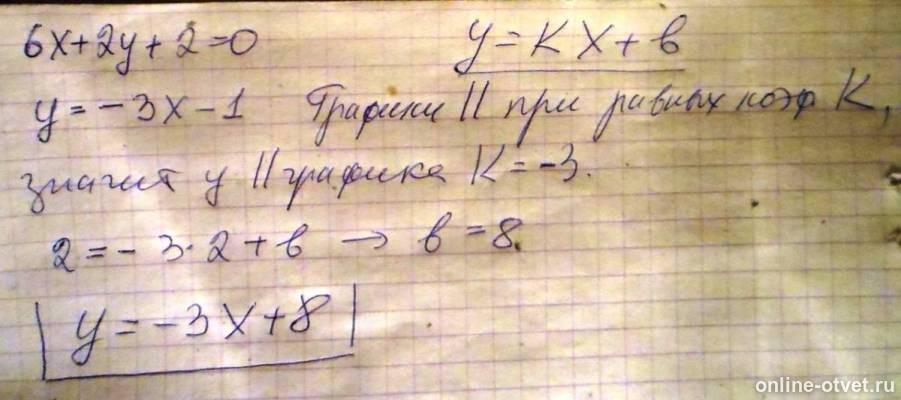 6x+2y+2=0
y=кx+в
y=-3x-1 Графики || при равных коэф К,
значит у || графика К=-3.
2=-3·2+в → в=8.
y=-3x+8
online-otvet.ru